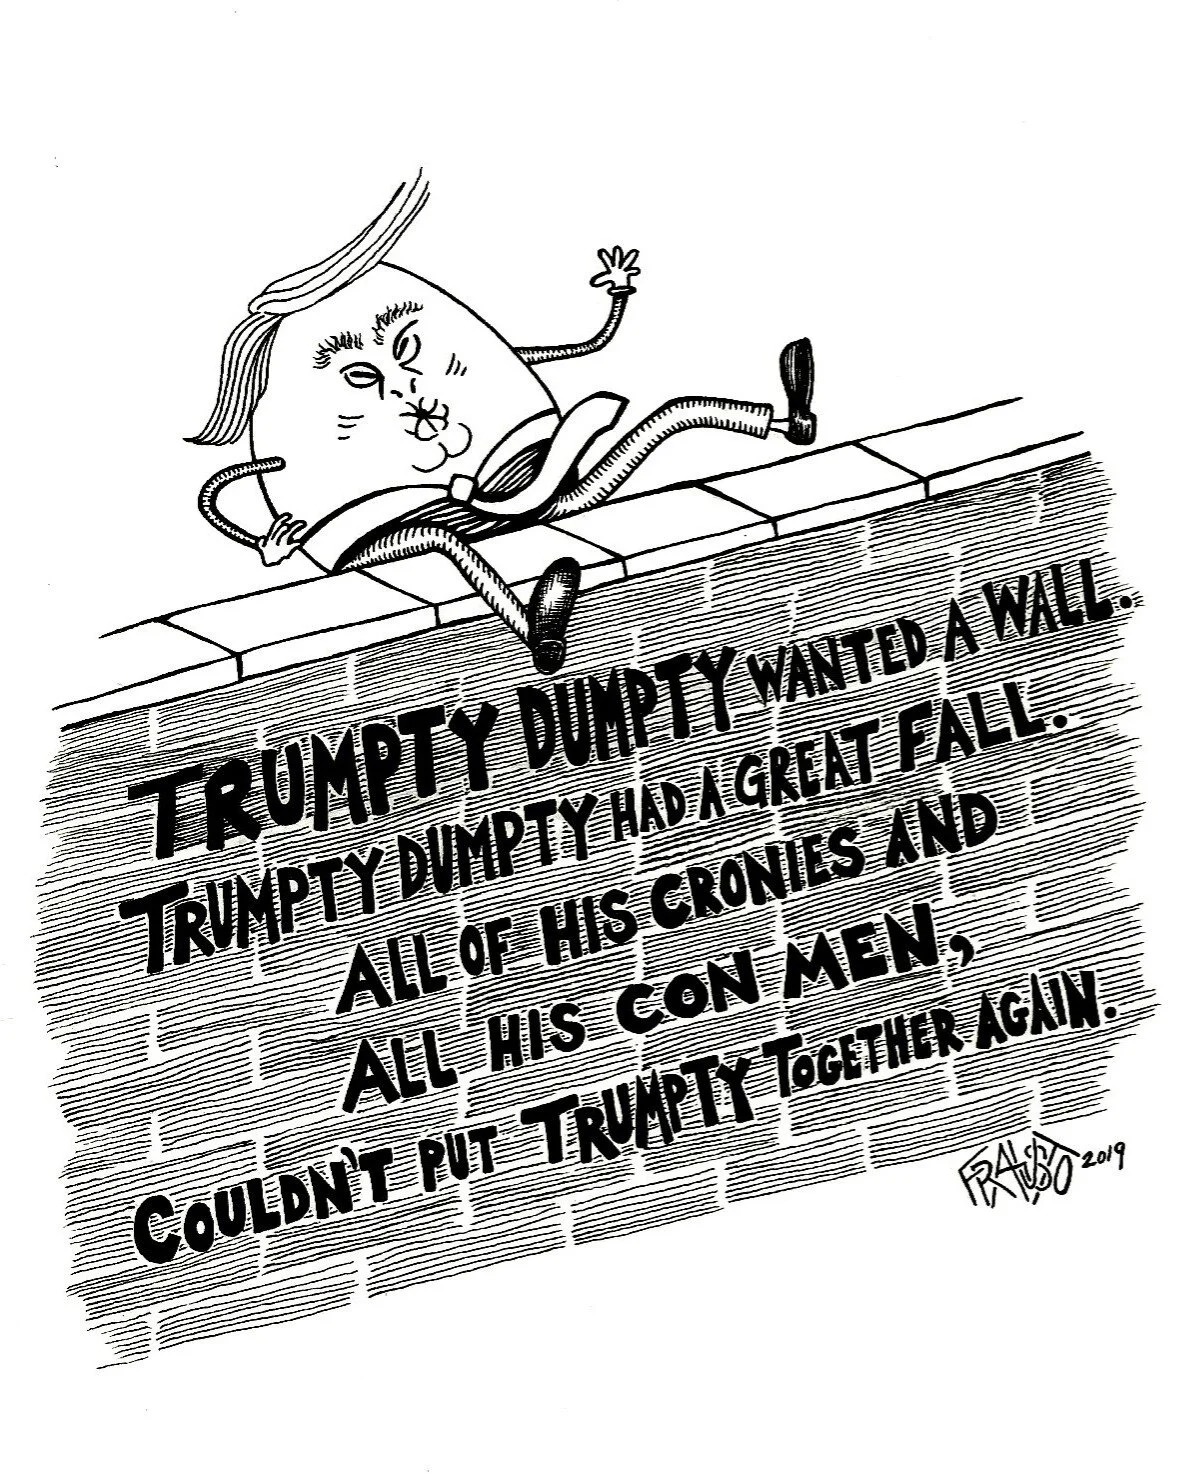 TRUMPTY DUMPTY WANTED A WALL.
TRUMPTY DUMPTY HAD A GREAT FALL.
ALL OF HIS CRONIES AND
ALL HIS CON MEN,
COULDN'T PUT TRUMPTY TOGETHER AGAIN.
FRAUSTO 2019